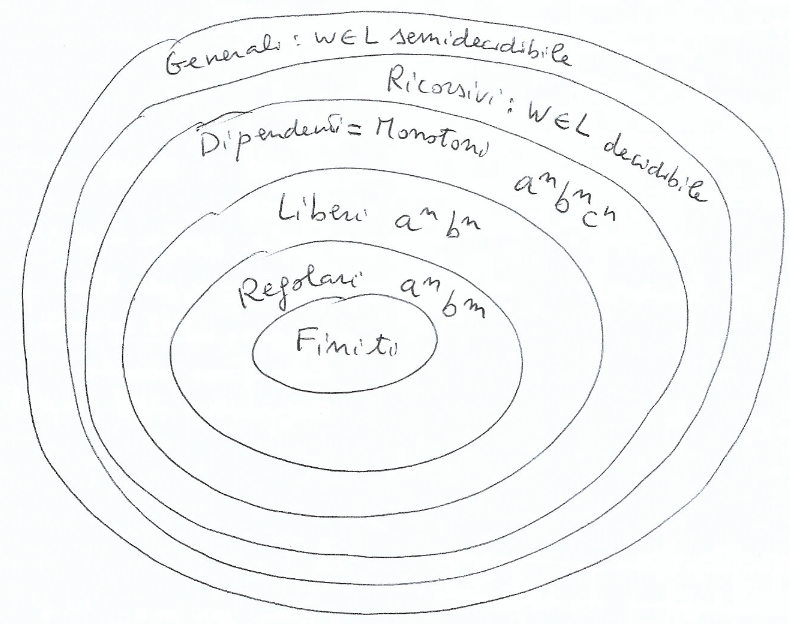 Generali: W∈L semidecidibile
Ricorsivi: W∈L decidibile
Dipendenti = Monotoni aⁿbⁿcⁿ
Liberi aⁿbⁿ
Regolari aⁿbᵐ
Finiti